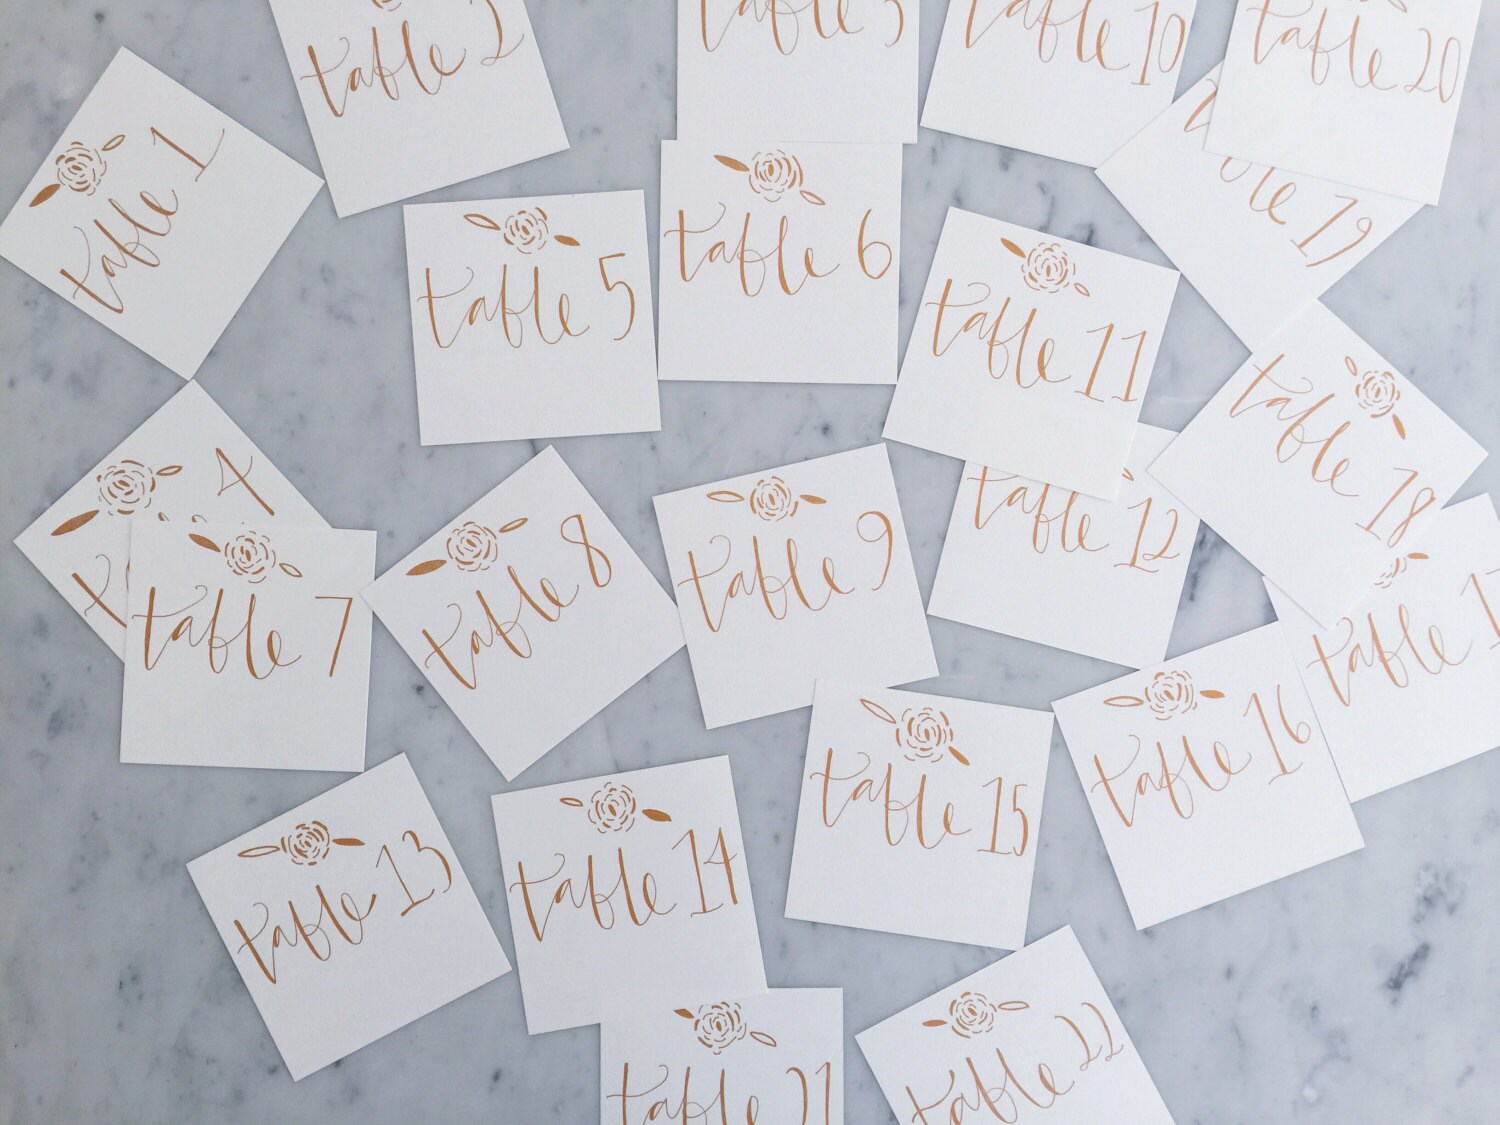 table 2
table
table 10
table 20
table 1
table 19
table 5
table 6
table 11
table 18
4
table 12
table 7
table 8
table 9
table 1
table 16
table 15
table 13
table 14
table 21
table 22